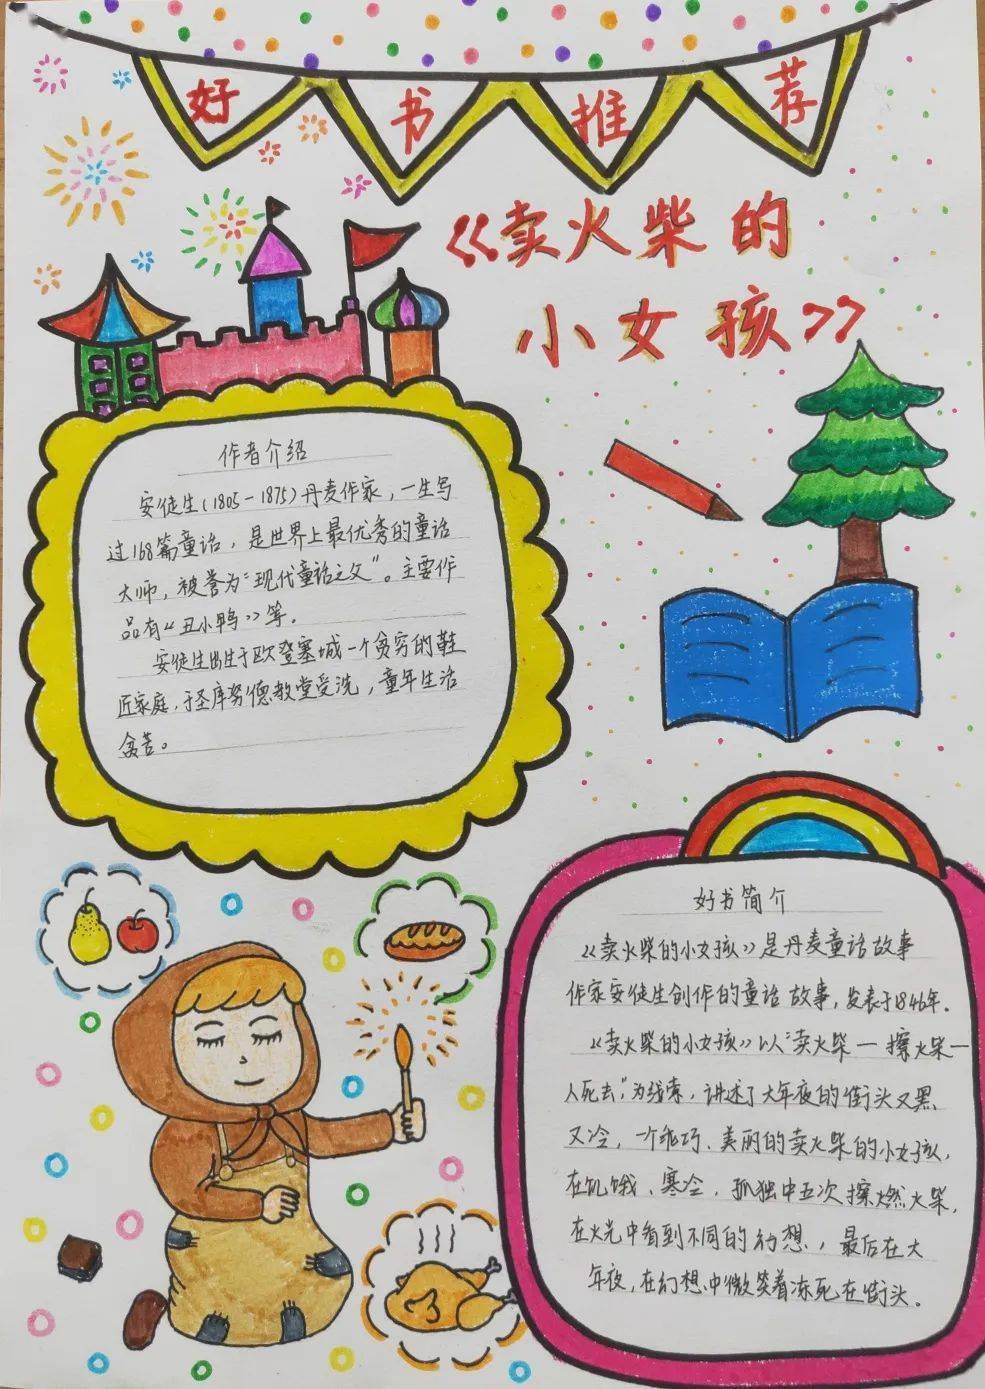 好书推荐
《卖火柴的
小女孩》
作者介绍
安徒生(1805-1875)丹麦作家，一生写
过168篇童话，是世界上最优秀的童话
大师，被誉为"现代童话之父"。主要作
品有《丑小鸭》等.
安徒生出生于欧登塞城一个贫穷的鞋
匠家庭，于圣库努德教堂受洗，童年生活
贫苦。
好书简介
《卖火柴的小女孩》是丹麦童话故事
作家安徒生创作的童话故事，发表于1846年.
《卖火柴的小女孩》以"卖火柴—擦火柴—
人死去"为线索，讲述了大年夜的街头又黑
又冷，一个乖巧、美丽的卖火柴的小女孩，
在饥饿、寒冷，孤独中五次擦燃火柴，
在火光中看到不同的幻想，最后在大
年夜，在幻想中微笑着冻死在街头.